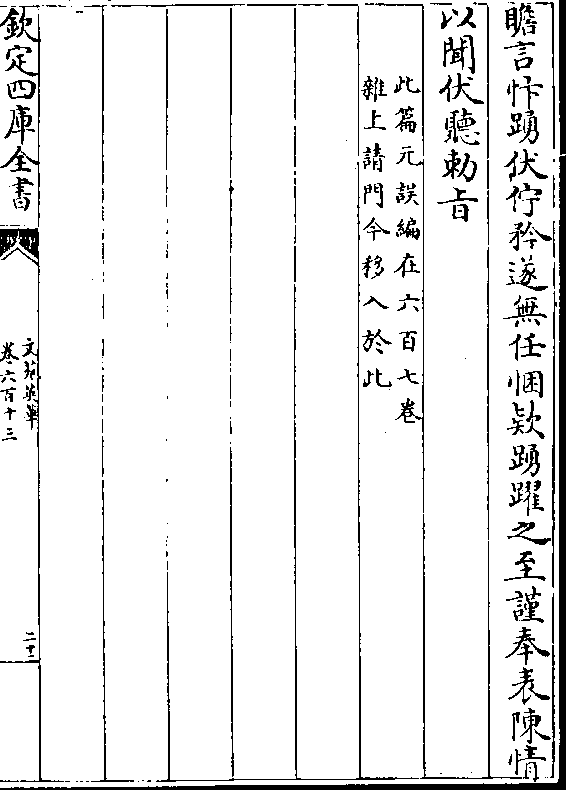 瞻言忭踴伏佇矜遂無任悃欵踴躍之至謹奉表陳情
以聞伏聽勅旨
此篇元誤編在六百七卷
雜上請門今移入於此
欽定四庫全書
文苑英華
卷六百十三
二十二